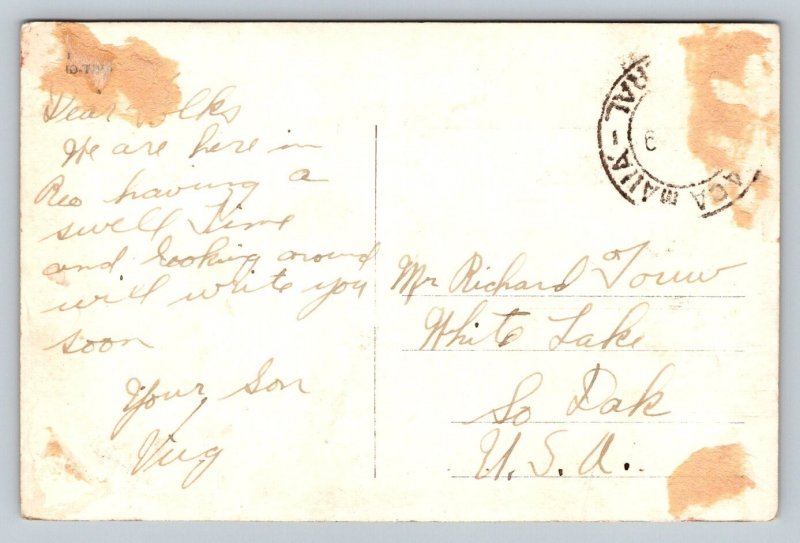 Dear Folks
We are here in
Rio having a
swell Time
and looking around
will write you
soon
Your Son
Virg
Mr Richard Touw
White Lake
So Dak
U.S.A.
RAL - 
MAUÁ